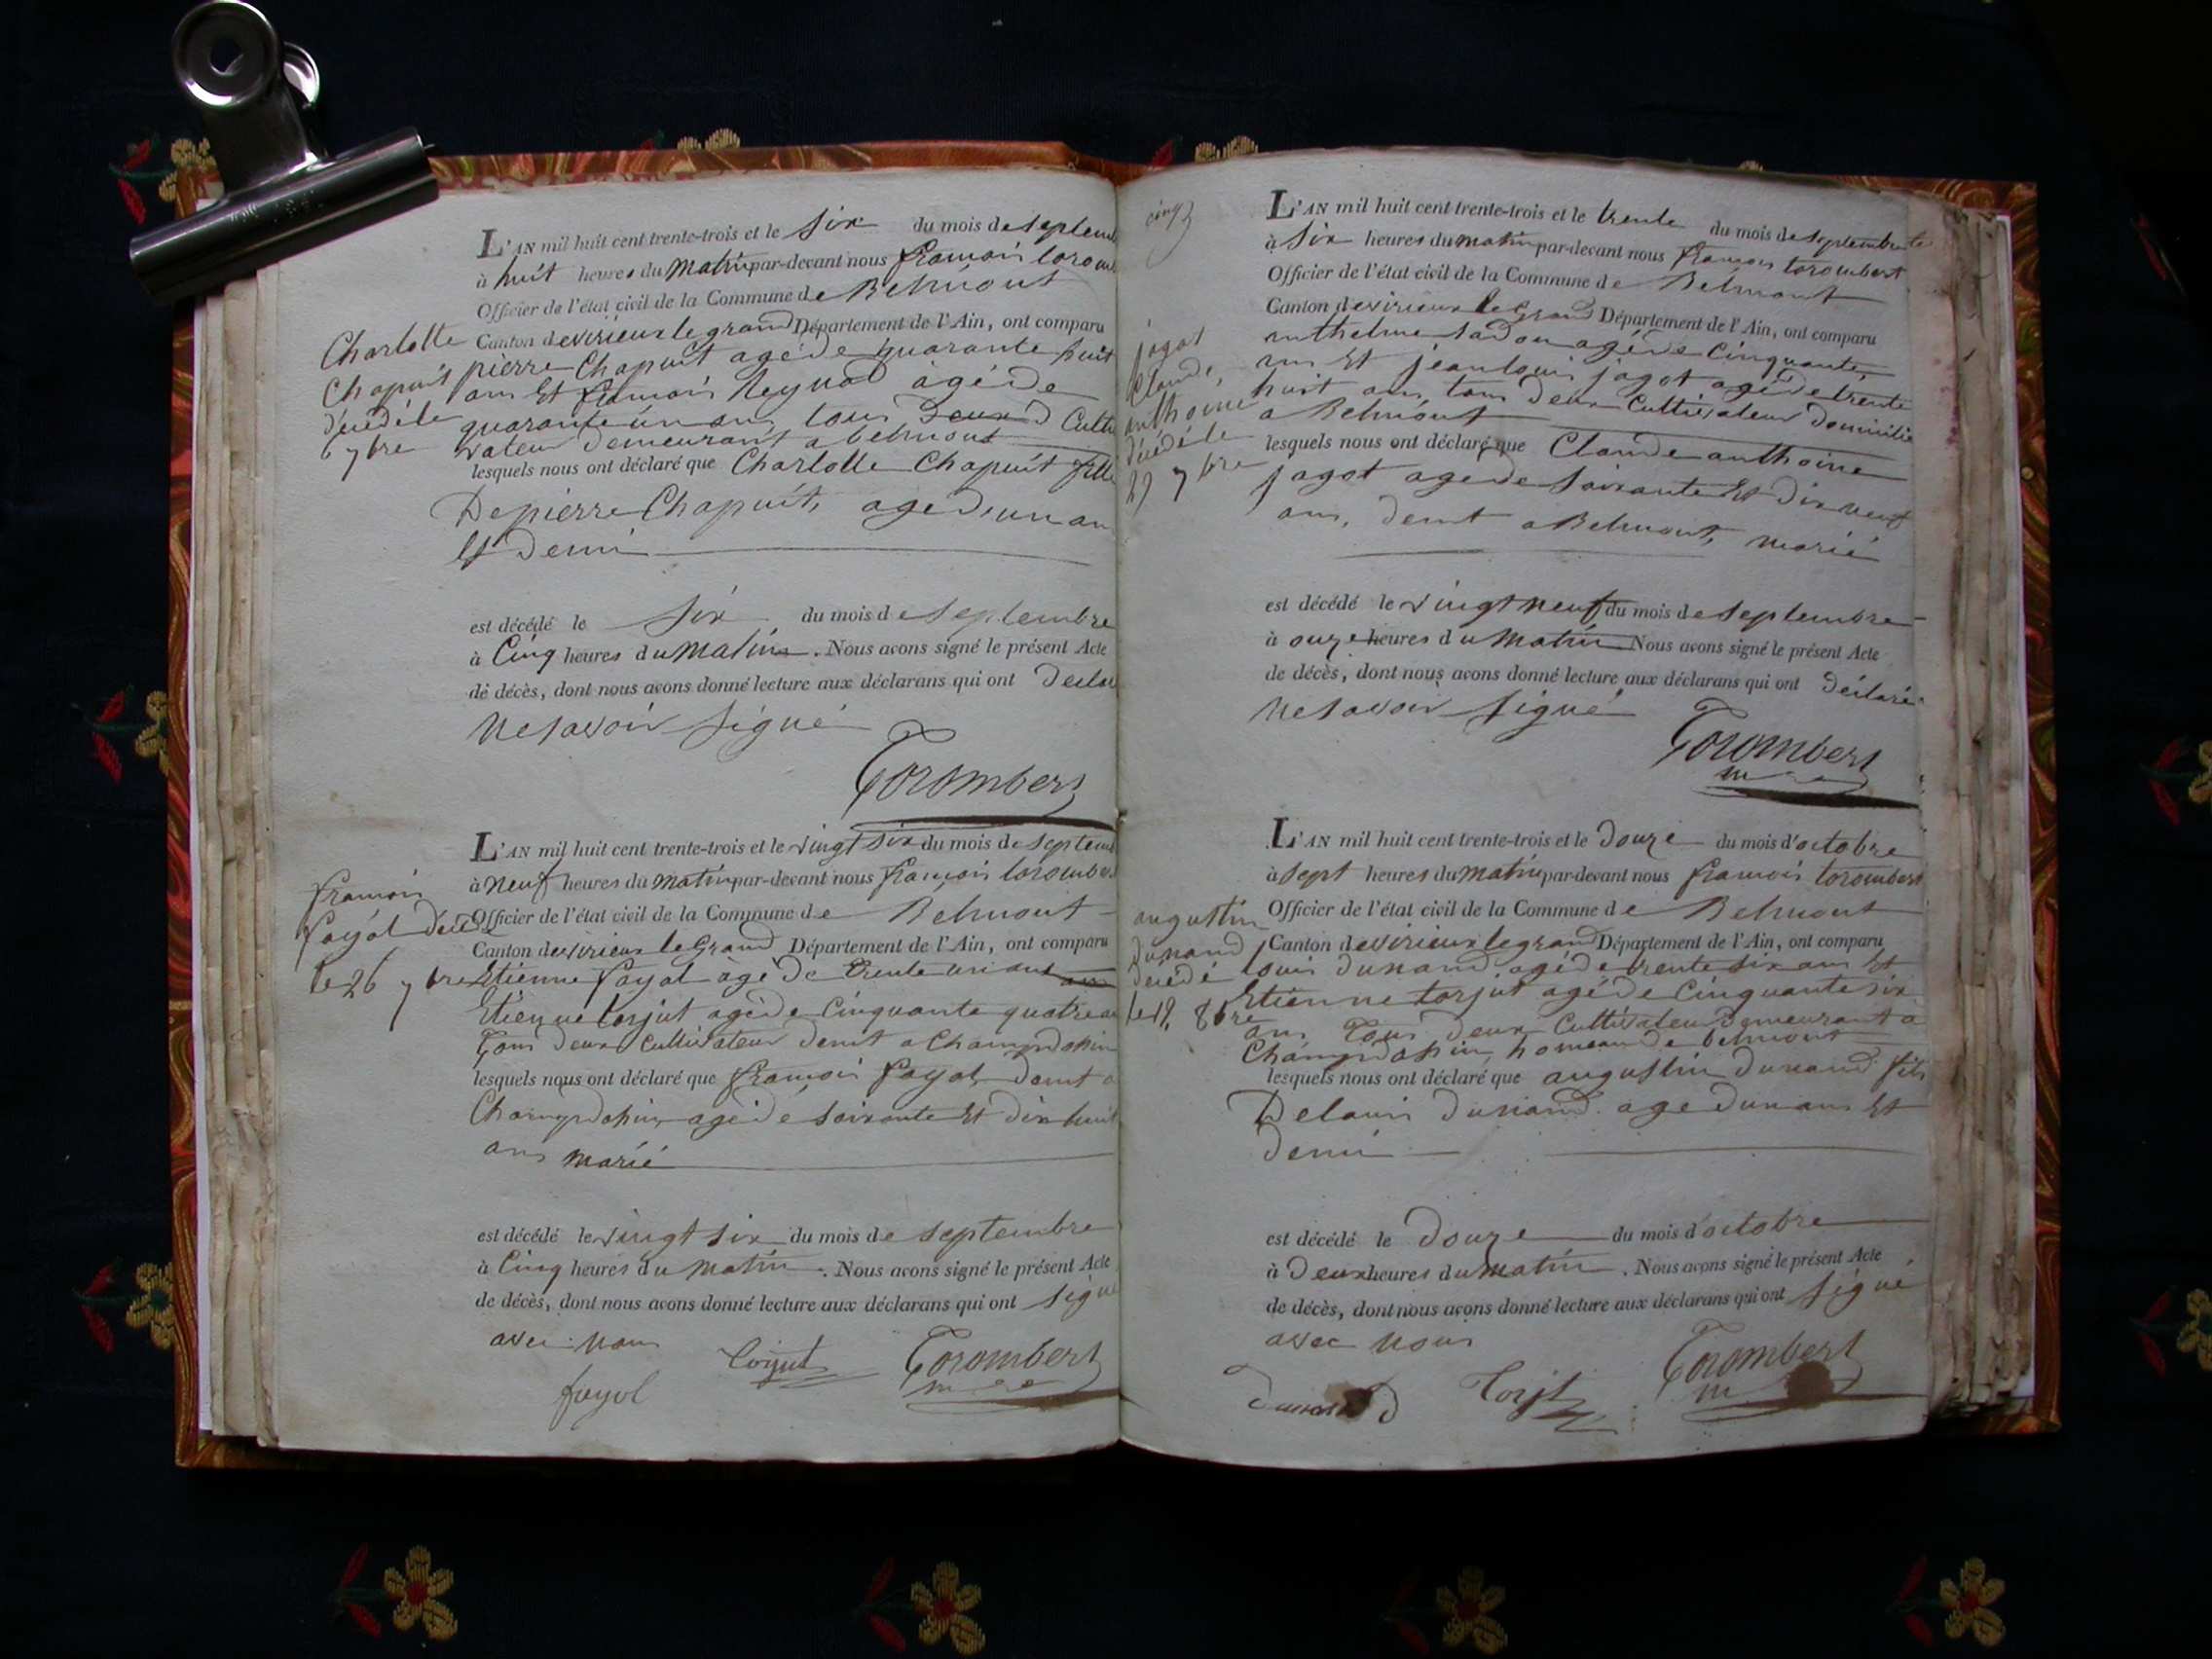 L'AN mil huit cent trente-trois et le six du mois de septem
à huit heures du matin par-devant nous françois torom
Officier de l'état civil de la Commune de Belmont
Canton de virieux le grand Département de l'Ain, ont comparu
pierre Chapuit agé de quarante huit
ans Et françois Reynod agé de
quarante un an, tous Deux Culti
vateur Demeurant a belmont
lesquels nous ont déclaré que Charlotte Chapuit fille
De pierre Chapuit, age d'un an
Et Demi
est décédé le six du mois de septembre
à Cinq heures du matin. Nous avons signé le présent Acte
de décès, dont nous avons donné lecture aux déclarans qui ont Decla
ne savoir signé
Torombert
Charlotte
Chapuis
décédé le
6 7bre
L'AN mil huit cent trente-trois et le vingt six du mois de septem
à neuf heures du matin par-devant nous françois torombe
Officier de l'état civil de la Commune de Belmont
Canton de virieux le Grand Département de l'Ain, ont comparu
Etienne fayol agé De trente un ans
Etienne torjut agé de Cinquante quatre
Tous deux Cultivateur demt a Champdohin
lesquels nous ont déclaré que françois fayol demt a
Champdohin agé de soixante Et dix huit
ans marié
est décédé le vingt six du mois de septembre
à Cinq heures du matin. Nous avons signé le présent Acte
de décès, dont nous avons donné lecture aux déclarans qui ont signé
avec nous
fayol Torjut Torombert
françois
fayol décédé
le 26 7bre
cinq
L'AN mil huit cent trente-trois et le trente du mois de septembre
à six heures du matin par-devant nous françois torombert
Officier de l'état civil de la Commune de Belmont
Canton de virieux le Grand Département de l'Ain, ont comparu
anthelme agé de Cinquante
ans Et jean louis jagot agé de trente
huit ans, tous deux Cultivateur Domicilie
a Belmont
lesquels nous ont déclaré que Claude anthoine
jagot age de soixante Et dix neuf
ans, demt a Belmont, marié
est décédé le vingt neuf du mois de septembre
à onze heures du matin Nous avons signé le présent Acte
de décès, dont nous avons donné lecture aux déclarans qui ont déclaré
ne savoir signé
Torombert
jagot
Claude,
anthoine
décédé le
29 7bre
L'AN mil huit cent trente-trois et le Douze du mois d'octobre
à sept heures du matin par-devant nous françois torombert
Officier de l'état civil de la Commune de Belmont
Canton de virieux le grand Département de l'Ain, ont comparu
louis dunand agé de trente six ans Et
Etienne torjut agé de Cinquante six
ans Tous deux Cultivateur Demeurant a
Champdohin, homeau de belmont
lesquels nous ont déclaré que augustin Dunand fils
De louis Dunand age d'un ans Et
Demi
est décédé le Douze du mois d'octobre
à Deux heures du matin. Nous avons signé le présent Acte
de décès, dont nous avons donné lecture aux déclarans qui ont signé
avec nous
Dunand Torjt Torombert
augustin
Dunand
décédé
le 12, 8bre